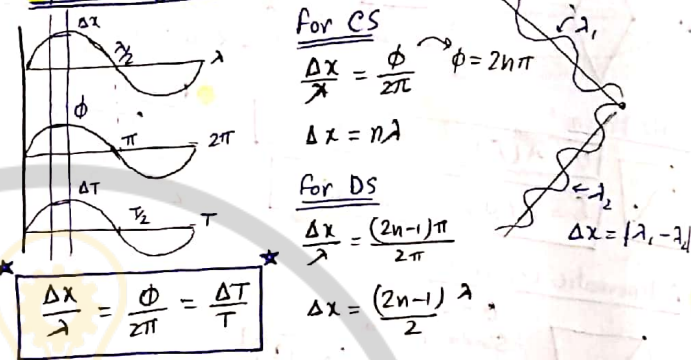 Δx
λ/2
λ
ϕ
π
2π
ΔT
T/2
T
Δx/λ = ϕ/2π = ΔT/T
for CS
Δx/λ = ϕ/2π → ϕ = 2nπ
Δx = nλ
for DS
Δx/λ = (2n-1)π/2π
Δx = (2n-1)λ/2
λ₁
λ₂
Δx = |λ₁ - λ₂|